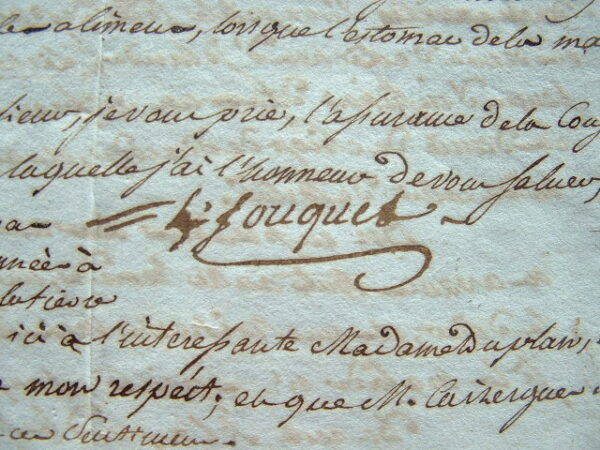 alimens, lorsque l'estomac de la ma
sieur, je vous prie, l'assurance de la Con
laquelle j'ai l'honneur de vous saluer,
Fouquet
année à
ici à l'interessante Madame Duplan,
mon respect; et que M. Cusergues
ce sentiment.